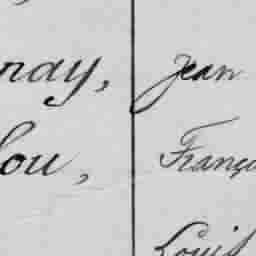 nay, Jean
lou, Franço
Louis